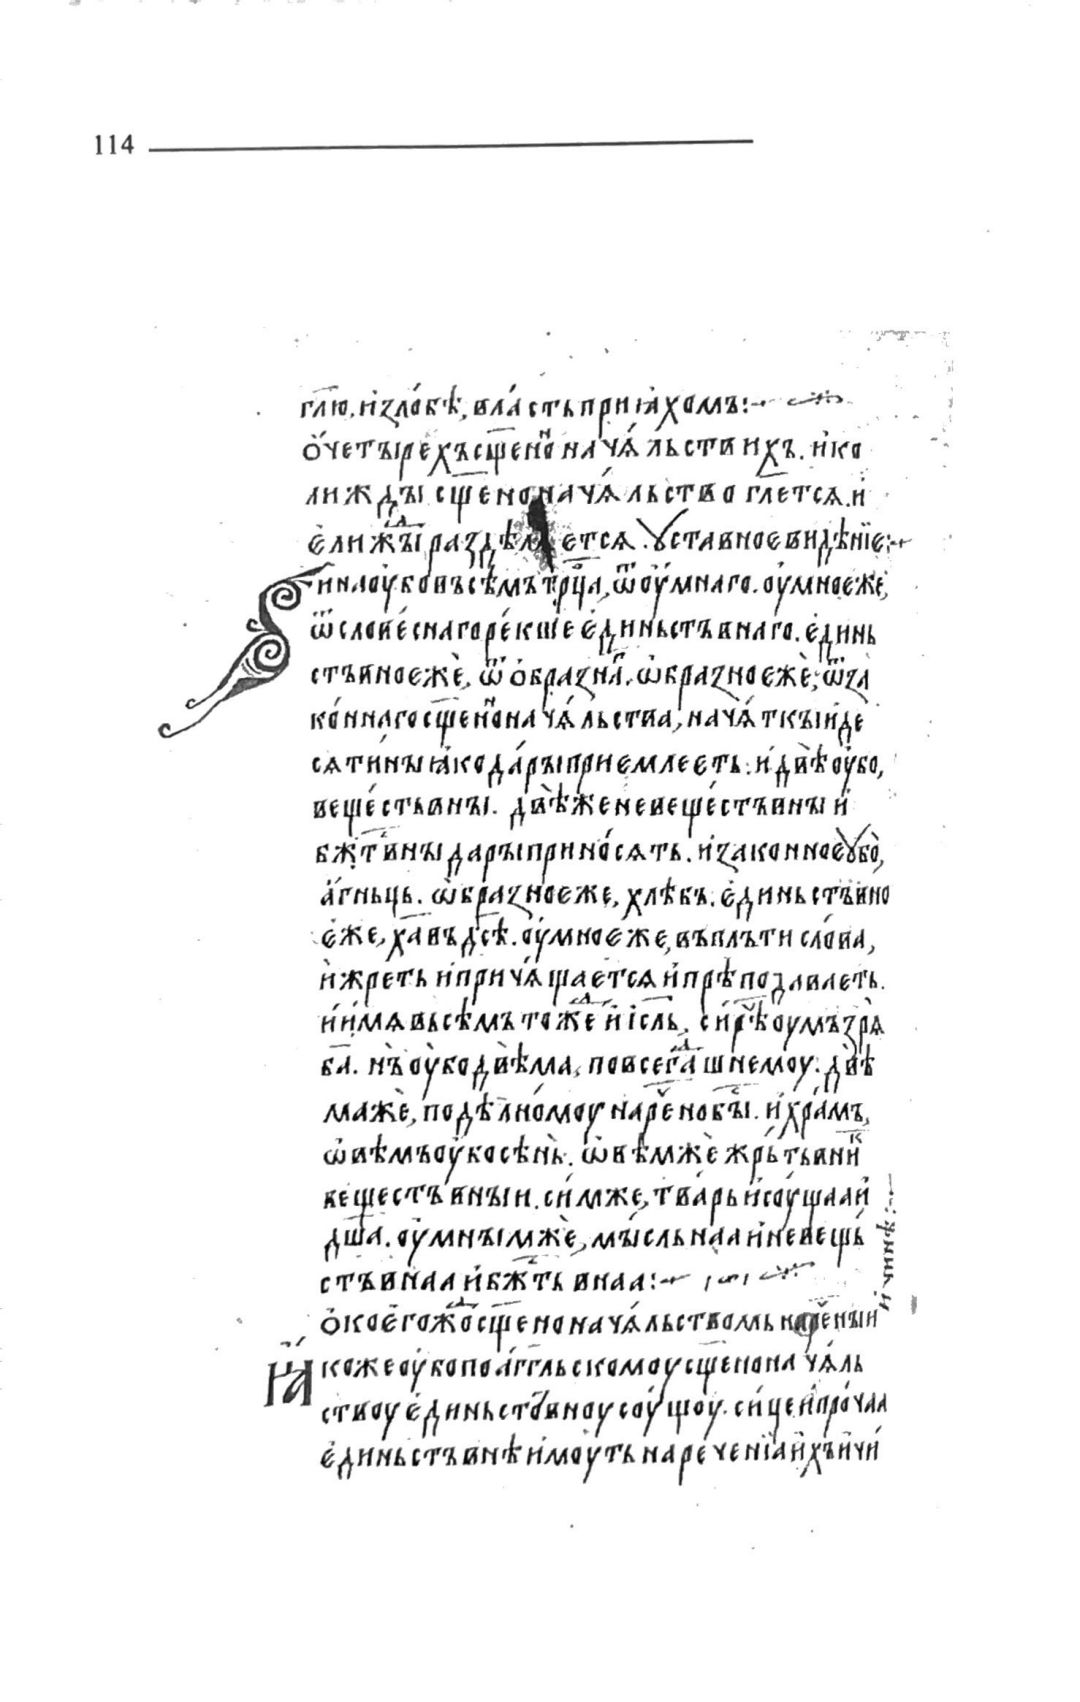 114
гл҃ю. и҆злобѣ, вла́сть прїꙗхомъ:
Ѡ҆четырехъ сщ҃енⷩ҇оначѧ́льствихъ. и҆ко
лижды сщ҃еноначѧ́льство гл҃етсѧ. и҆
є҆лижⷣы раздѣлѧетсѧ. ꙋставное видѣнїе:
и҆на оу҆бо въсѣмъ трⷪ҇ца, ѿ оу҆мнаго. оу҆мноеже,
ѿ слове́снаго ре́кше є҆диньстъвнаго. є҆динь
стъвноежѐ, ѿ ѻ҆бразнаⷢ. ѡ҆бразноежѐ, ѿ за
ко́ннаго сщ҃енⷩ҇оначѧ́льства, начѧ́ткы и҆ де
сѧти́ны ꙗ҆ко да́ры приемлееть. и҆ двѣ оу҆бо,
веще́ствьны. двѣже невеще́стъвны и҆
бж҃тⷭ҇вны дары прино́сѧть. и҆ законное ꙋ҆бо̀,
а҆гньць. ѡ҆бразноеже, хлѣбъ. є҆диньстъвно
є҆же, х҃а въ дс҃ѣ. оу҆мноеже, въплъти сло́ва,
и҆ жреть и҆ причѧ́щаетсѧ и҆ прѣподаваеть.
и҆ и҆мѧ въсѣмъ тоⷤже и҆ і҆сл҃ь, сирⷱ҇ѣ оу҆мъ зрѧ̀
б҃а. нъ оу҆бо двѣма, по всегⷣашнемоу. двѣ
мажѐ, по дѣлно́моу нарⷱ҇еновⷭ҇ы. и҆ хра́мъ,
ѡ҆вѣмъ оу҆бо сѣнь. ѡ҆вѣмжѐ жрь́твникⷦ҇
вещестъвныи. си́мже, тварь и҆ соу́щаа и҆
дш҃а. оу҆мнымжѐ, мы́сльнаа и҆ невещь
стъвнаа и҆ бжⷭ҇твьнаа:
ѣникⷦ҇ и҆
Ѻ҆коегожⷣо сщ҃еноначѧ́льствомь нарⷱ҇еныи
Ꙗ҆коже оу҆бо по а҆гг҃льскомоу сщ҃еноначѧль
ствоу є҆диньстъвноу соу́щоу. си́це и҆ про́чаа
є҆диньстъвнѣ и҆моу́ть нарече́нїа и҆хъ и҆ чи́